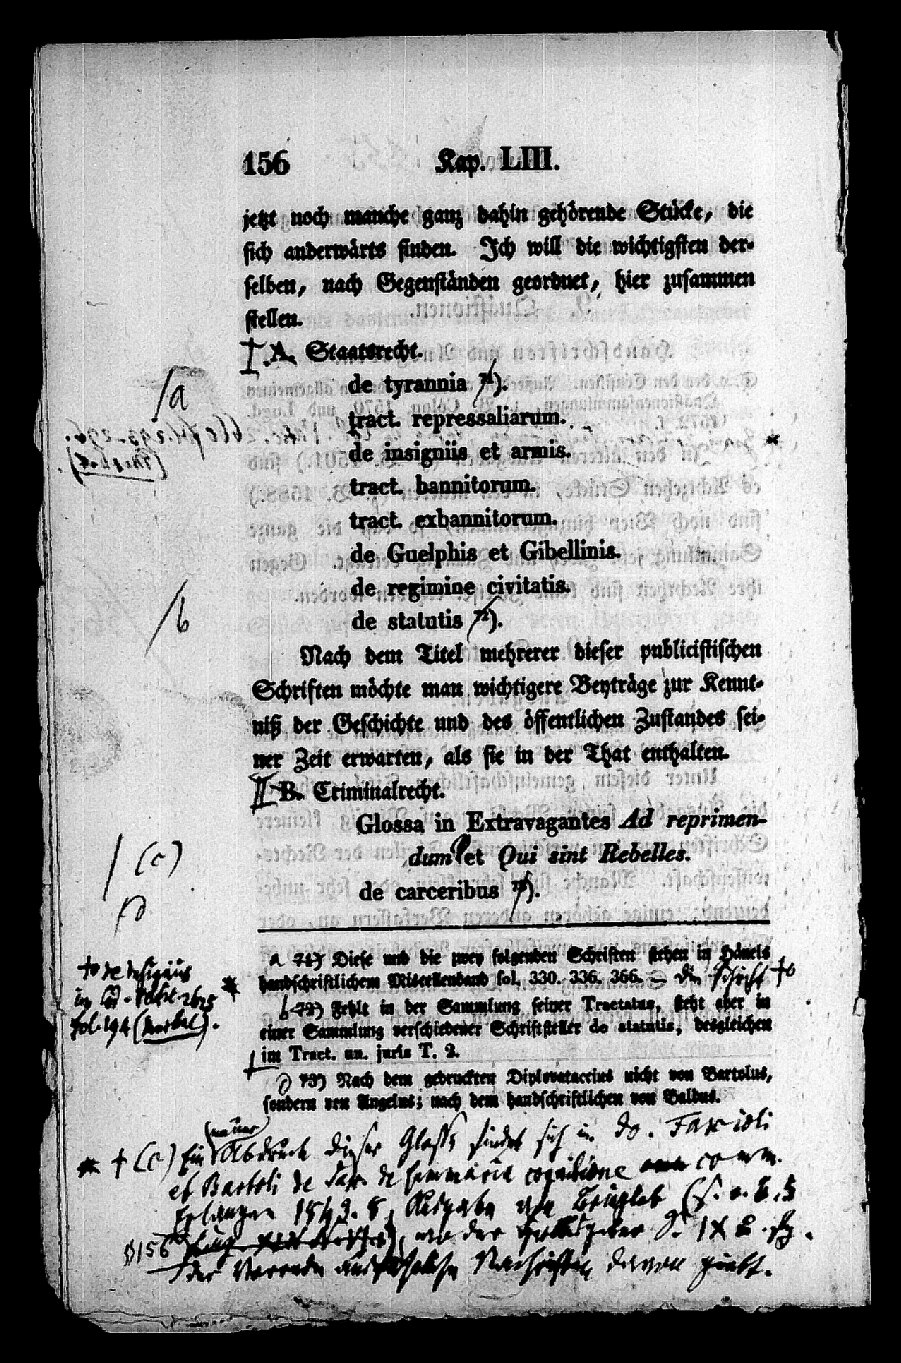 156 Kap. LIII.
jetzt noch manche ganz dahin gehörende Stücke, die
sich anderwärts finden. Ich will die wichtigsten der-
selben, nach Gegenständen geordnet, hier zusammen
stellen.
I. A. Staatsrecht.
de tyrannia 71).
/a
tract. repressaliarum.
de insigniis et armis.
tract. bannitorum.
tract. exbannitorum.
de Guelphis et Gibellinis.
de regimine civitatis.
/b
de statutis 72).
Nach dem Titel mehrerer dieser publicistischen
Schriften möchte man wichtigere Beyträge zur Kennt-
niß der Geschichte und des öffentlichen Zustandes sei-
ner Zeit erwarten, als sie in der That enthalten.
II B. Criminalrecht.
Glossa in Extravagantes Ad reprimen-
dum et Qui sint Rebelles.
/ (c)
de carceribus 73).
a 71) Diese und die zwey folgenden Schriften stehen in Hänels
handschriftlichem Miscellenband fol. 330. 336. 366.
b 72) Fehlt in der Sammlung seiner Tractatus, steht aber in
einer Sammlung verschiedener Schriftsteller de statutis, desgleichen
im Tract. un. juris T. 2.
73) Nach dem gedruckten Diplovataccius nicht von Bartolus,
sondern von Angelus; nach dem handschriftlichen von Baldus.
to de insigniis
in Cod.
fol. 194
* + (c) Ein Abdruck dieser Glosse findet sich in
et Bartoli de Sax. de summaria cognitione comm.
Erlangen Ausgabe von
der Herausgeber S. IX
§156
der Vorrede Nachrichten davon giebt.